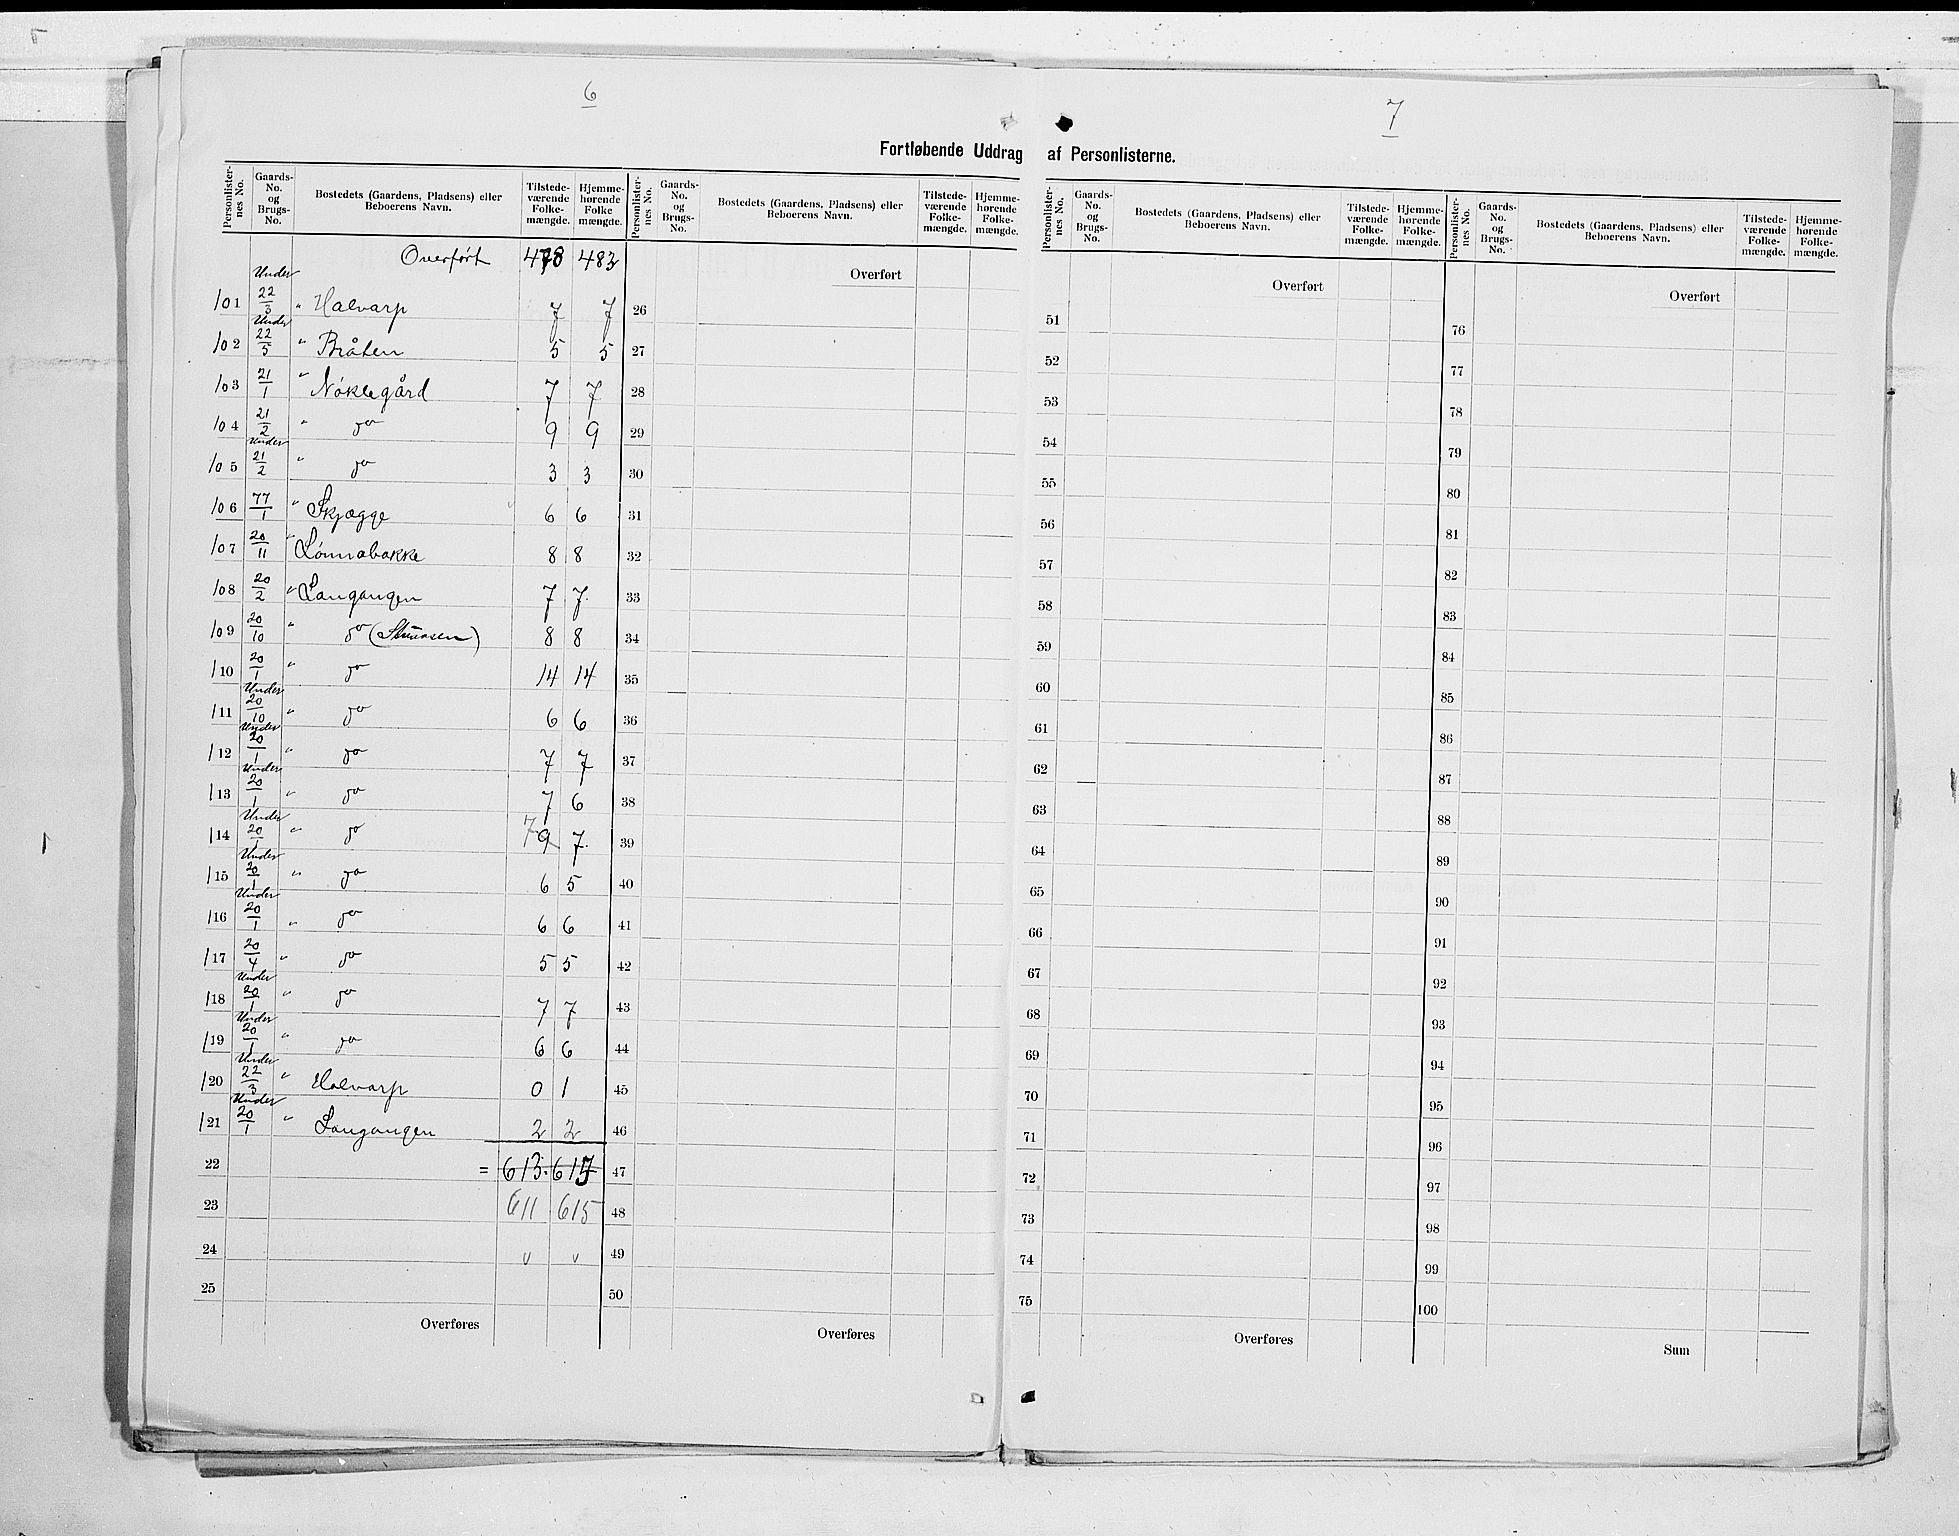 6
7
Fortløbende Uddrag af Personlisterne.
Personlister-nes No. Gaards-No. og Brugs-No. Bostedets (Gaardens, Pladsens) eller Beboerens Navn. Tilstede-værende Folke-mængde. Hjemme-hørende Folke mængde.
Overført 478 483
101 Under 22/3 " Halvarp 7 7
102 Under 22/5 " Bråten 5 5
103 21/1 " Nøklegård 7 7
104 21/2 " do 9 9
105 Under 21/2 " do 3 3
106 77/1 " Skjægge 6 6
107 20/11 " Lønnebakke 8 8
108 20/2 " Langangen 7 7
109 20/10 " do 8 8
110 20/1 " do 14 14
111 Under 20/10 " do 6 6
112 Under 20/1 " do 7 7
113 Under 20/1 " do 7 6
114 Under 20/1 " do 7 9 7
115 Under 20/1 " do 6 5
116 Under 20/1 " do 6 6
117 20/4 " do 5 5
118 Under 20/1 " do 7 7
119 Under 20/1 " do 6 6
120 Under 22/3 " Halvarp 0 1
121 Under 20/1 " Langangen 2 2
22 = 613 617
23 611 615
24 v v
25
Overføres
Personlister-nes No. Gaards-No. og Brugs-No. Bostedets (Gaardens, Pladsens) eller Beboerens Navn. Tilstede-værende Folke-mængde. Hjemme-hørende Folke-mængde.
Overført
26
27
28
29
30
31
32
33
34
35
36
37
38
39
40
41
42
43
44
45
46
47
48
49
50
Overføres
Personlister-nes No. Gaards-No. og Brugs-No. Bostedets (Gaardens, Pladsens) eller Beboerens Navn. Tilstede-værende Folke-mængde. Hjemme-hørende Folke-mængde.
Overført
51
52
53
54
55
56
57
58
59
60
61
62
63
64
65
66
67
68
69
70
71
72
73
74
75
Overføres
Personlister-nes No. Gaards-No. og Brugs-No. Bostedets (Gaardens, Pladsens) eller Beboerens Navn. Tilstede-værende Folke-mængde. Hjemme-hørende Folke-mængde.
Overført
76
77
78
79
80
81
82
83
84
85
86
87
88
89
90
91
92
93
94
95
96
97
98
99
100
Sum